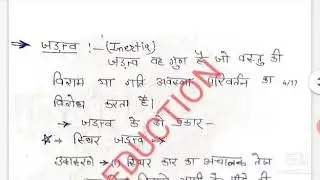 ⇒ जड़त्व :- (Inertia)
जड़त्व वह गुण है जो वस्तु की
विराम या गति अवस्था परिवर्तन का
विरोध करता है।
→ जड़त्व के दो प्रकार –
स्थिर जड़त्व →
उदाहरण → (1) स्थिर कार का अचानक तेज
EDUCTION